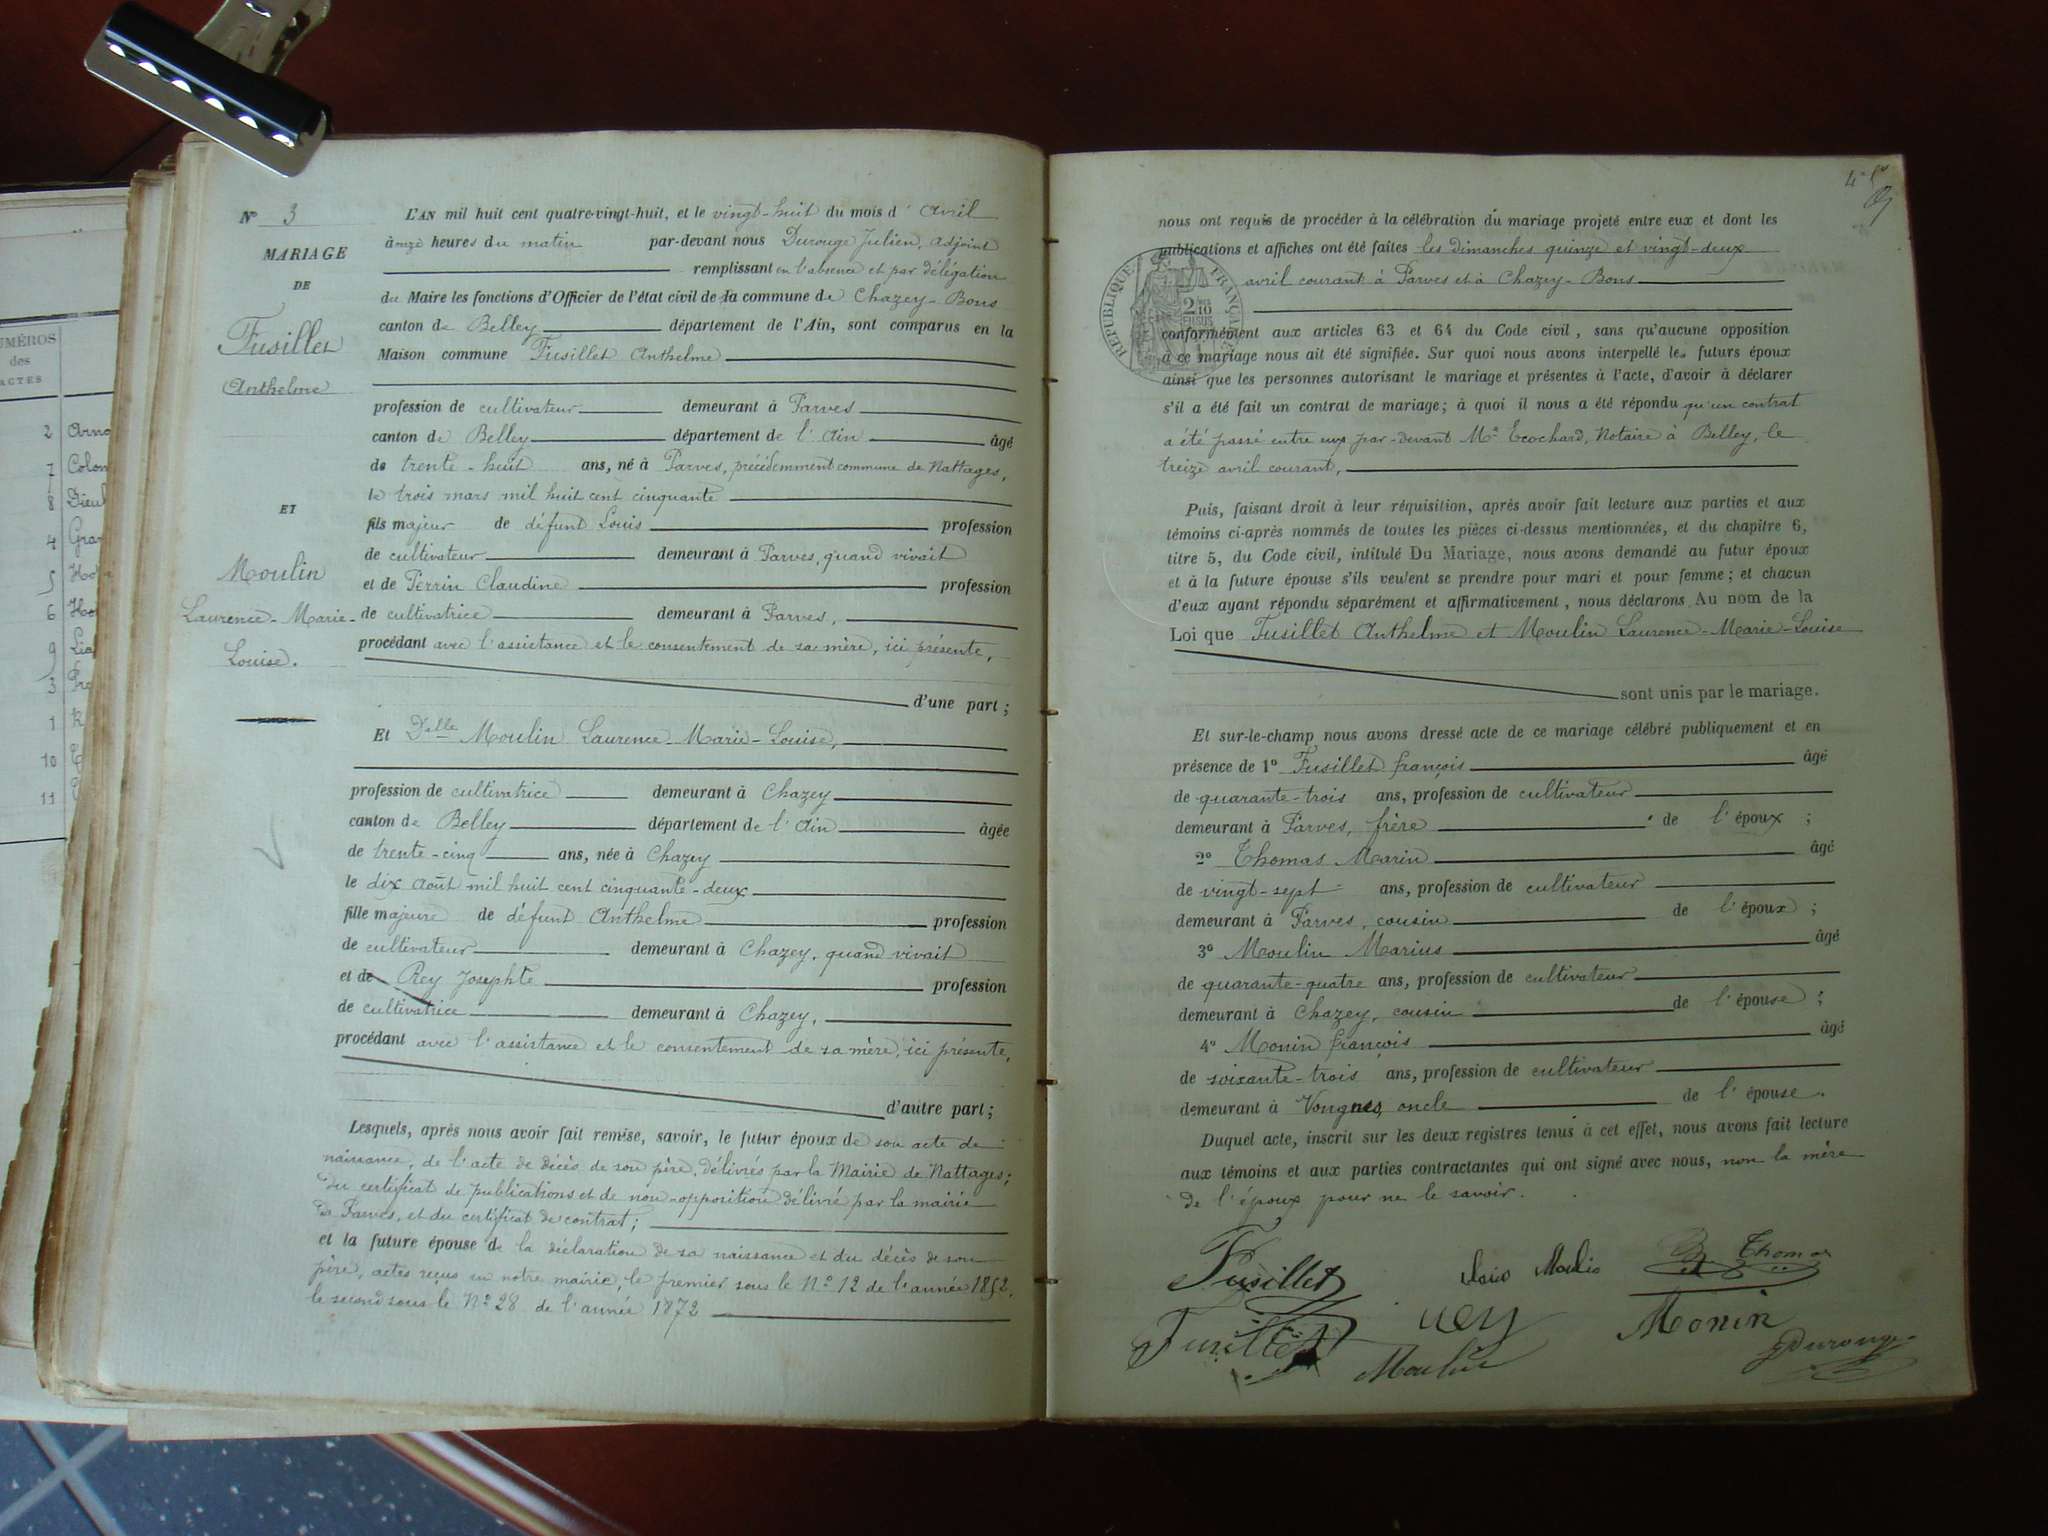 UMÉROS
des
ACTES
2 Arno
7 Colon
8 Dieul
4 Gran
5 Ho
6 Ho
9 Lia
3
1
10
11
N° 3
MARIAGE
DE
Fusillet
Anthelme
ET
Moulin
Laurence-Marie-
Louise.
L'AN mil huit cent quatre-vingt-huit, et le vingt-huit du mois d'avril
à onze heures du matin par-devant nous Durouge Julien, adjoint
remplissant en l'absence et par délégation
du Maire les fonctions d'Officier de l'état civil de la commune de Chazey-Bons
canton de Belley département de l'Ain, sont comparus en la
Maison commune Fusillet Anthelme
profession de cultivateur demeurant à Parves
canton de Belley département de l'Ain âgé
de trente-huit ans, né à Parves, précédemment commune de Nattages,
le trois mars mil huit cent cinquante
fils majeur de défunt Louis profession
de cultivateur demeurant à Parves, quand vivait
et de Perrin Claudine profession
de cultivatrice demeurant à Parves,
procédant avec l'assistance et le consentement de sa mère, ici présente,
d'une part;
Et Delle Moulin Laurence-Marie-Louise,
profession de cultivatrice demeurant à Chazey
canton de Belley département de l'Ain âgée
de trente-cinq ans, née à Chazey
le dix Août mil huit cent cinquante-deux
fille majeure de défunt Anthelme profession
de cultivateur demeurant à Chazey, quand vivait
et de Rey Josephte profession
de cultivatrice demeurant à Chazey,
procédant avec l'assistance et le consentement de sa mère, ici présente,
d'autre part;
Lesquels, après nous avoir fait remise, savoir, le futur époux de son acte de
naissance, de l'acte de décès de son père, délivrés par la Mairie de Nattages;
du certificat de publications et de non-opposition délivré par la mairie
de Parves, et du certificat de contrat;
et la future épouse de la déclaration de sa naissance et du décès de son
père, actes reçus en notre mairie, le premier sous le N° 12 de l'année 1852,
le second sous le N° 28 de l'année 1872
nous ont requis de procéder à la célébration du mariage projeté entre eux et dont les
publications et affiches ont été faites les dimanches quinze et vingt-deux
avril courant à Parves et à Chazey-Bons
RÉPUBLIQUE FRANÇAISE
conformément aux articles 63 et 64 du Code civil, sans qu'aucune opposition
à ce mariage nous ait été signifiée. Sur quoi nous avons interpellé les futurs époux
ainsi que les personnes autorisant le mariage et présentes à l'acte, d'avoir à déclarer
s'il a été fait un contrat de mariage; à quoi il nous a été répondu qu'un contrat
a été passé entre eux par-devant Me Ecochard, Notaire à Belley, le
treize avril courant,
Puis, faisant droit à leur réquisition, après avoir fait lecture aux parties et aux
témoins ci-après nommés de toutes les pièces ci-dessus mentionnées, et du chapitre 6,
titre 5, du Code civil, intitulé Du Mariage, nous avons demandé au futur époux
et à la future épouse s'ils veulent se prendre pour mari et pour femme; et chacun
d'eux ayant répondu séparément et affirmativement, nous déclarons Au nom de la
Loi que Fusillet Anthelme et Moulin Laurence-Marie-Louise
sont unis par le mariage.
Et sur-le-champ nous avons dressé acte de ce mariage célébré publiquement et en
présence de 1° Fusillet françois âgé
de quarante-trois ans, profession de cultivateur
demeurant à Parves, frère de l'époux;
2° Thomas Marin âgé
de vingt-sept ans, profession de cultivateur
demeurant à Parves, cousin de l'époux;
3° Moulin Marius âgé
de quarante-quatre ans, profession de cultivateur
demeurant à Chazey, cousin de l'épouse;
4° Monin françois âgé
de soixante-trois ans, profession de cultivateur
demeurant à Vongnes, oncle de l'épouse.
Duquel acte, inscrit sur les deux registres tenus à cet effet, nous avons fait lecture
aux témoins et aux parties contractantes qui ont signé avec nous, non la mère
de l'époux pour ne le savoir.
Fusillet Thomas
Fusillet Monin
Moulin Durouge